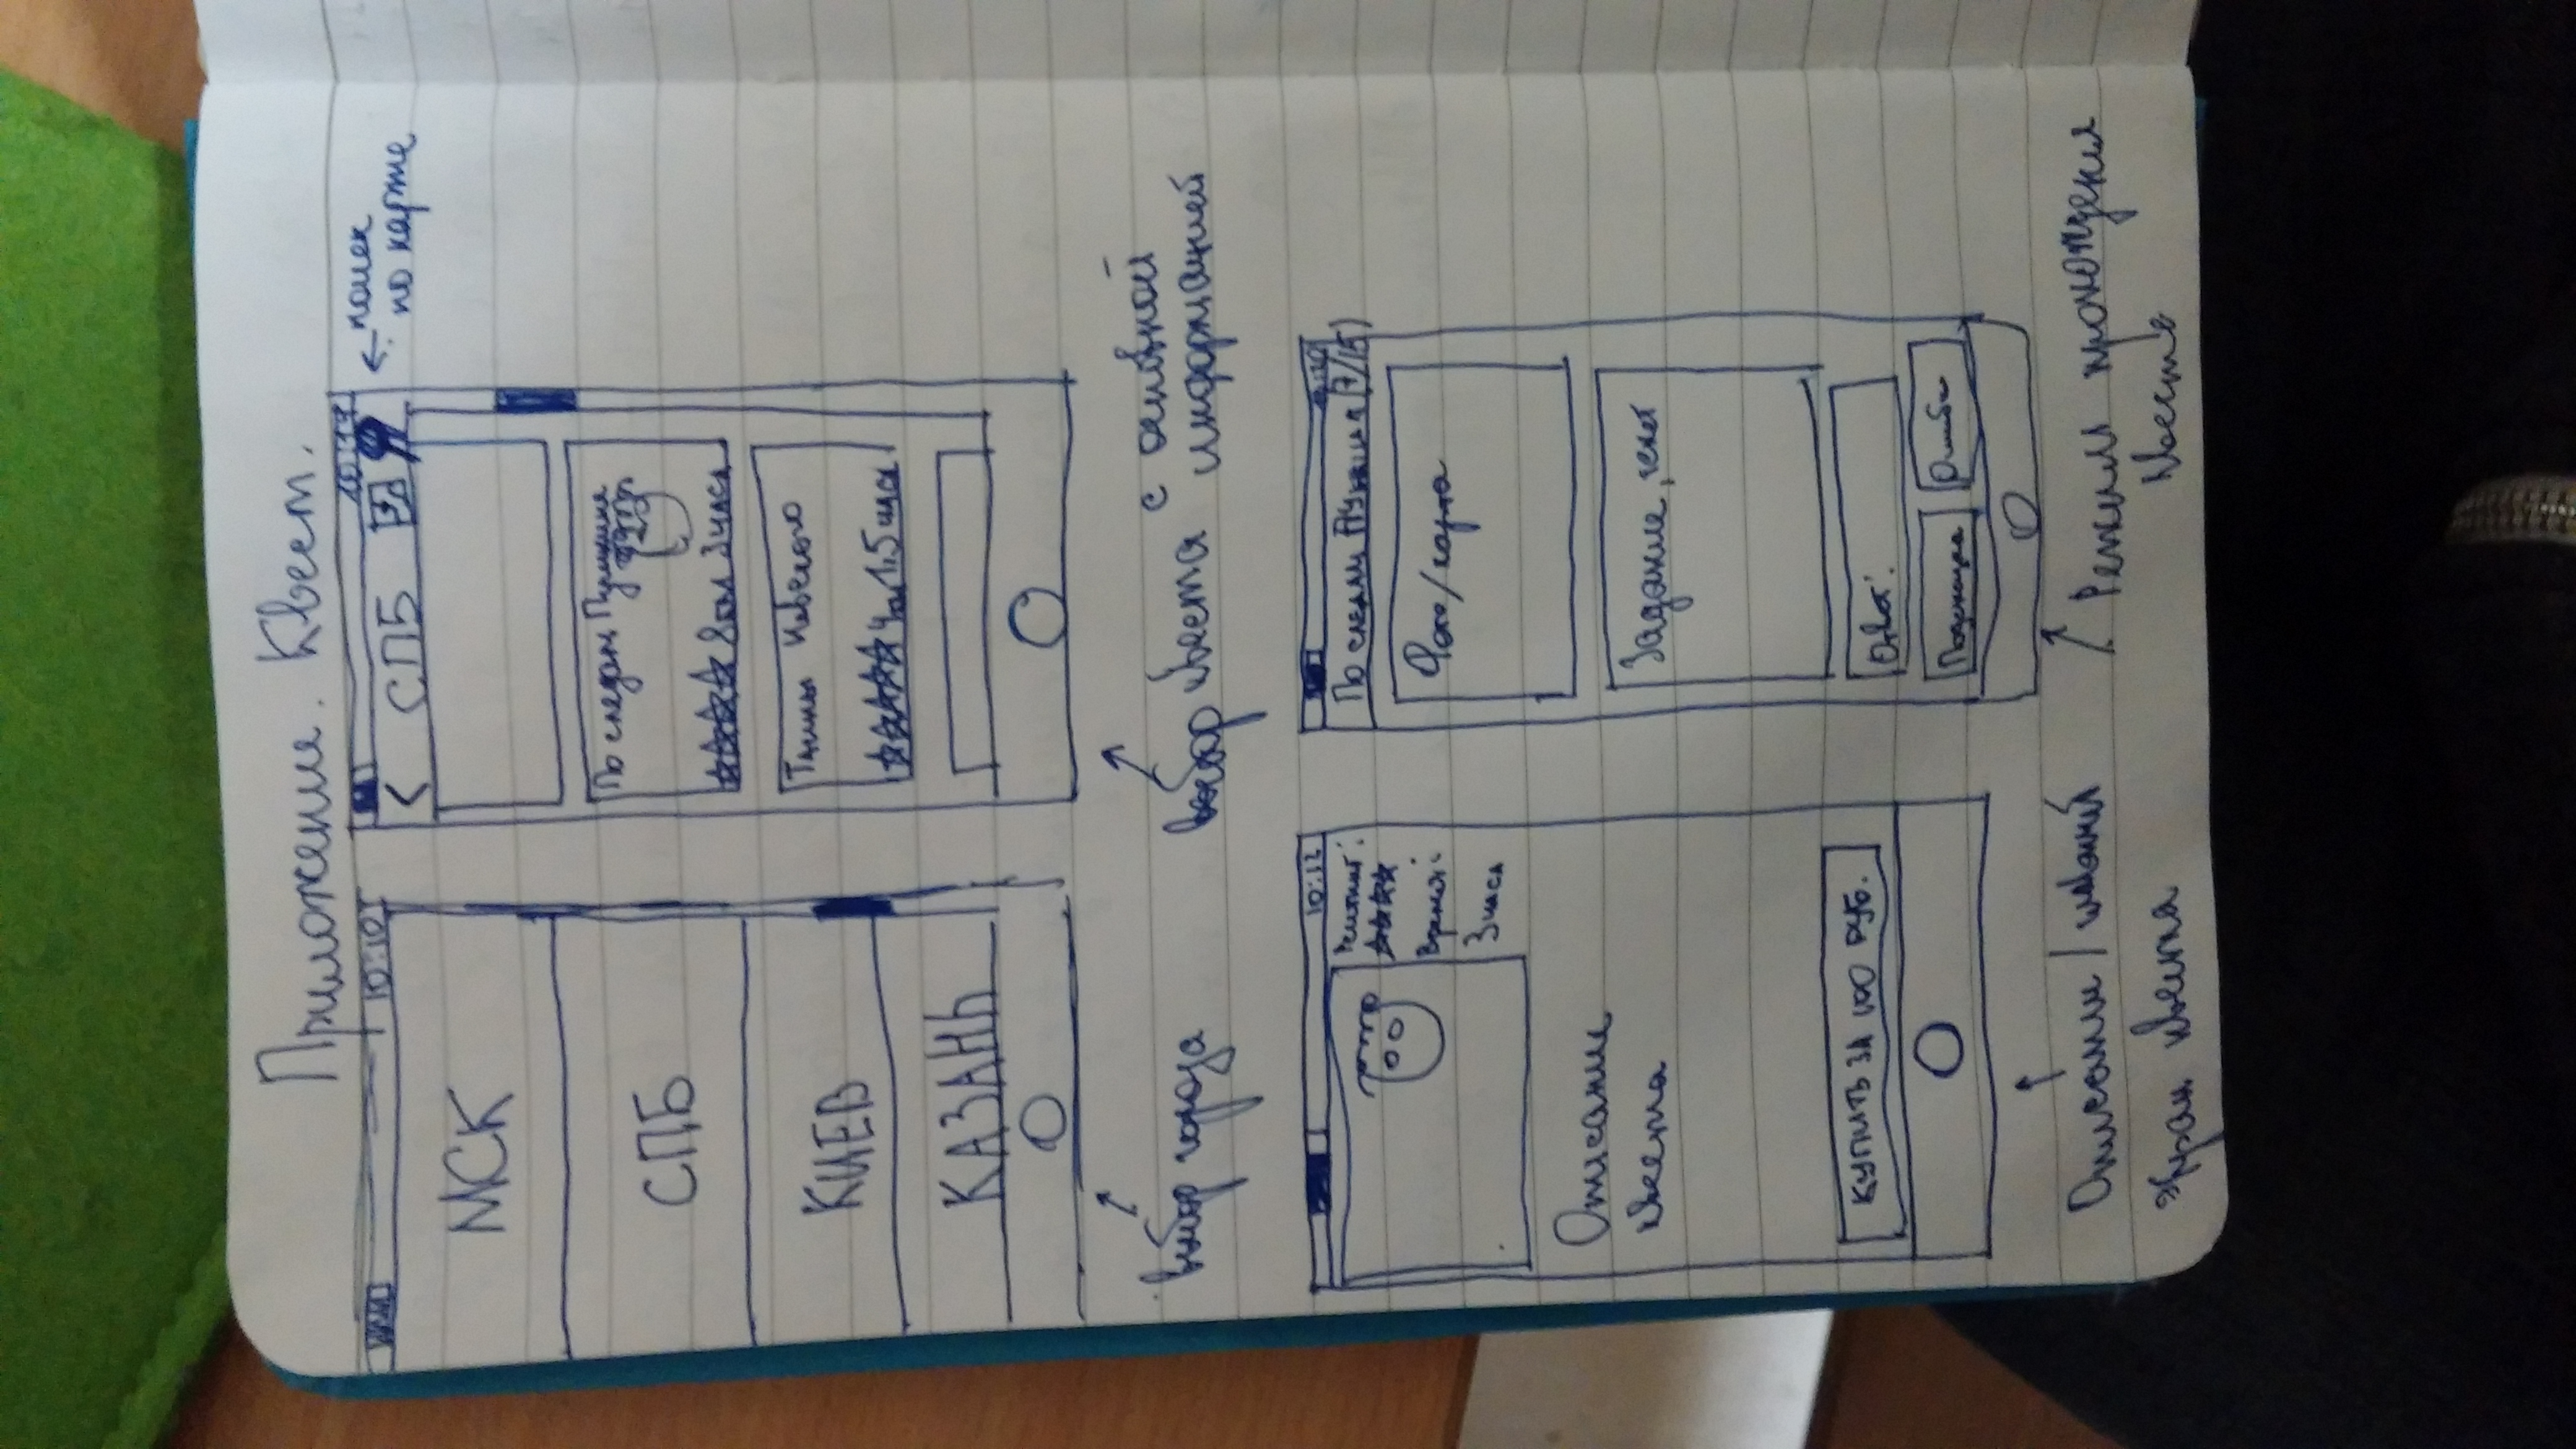 Приложение. Квест.
10:10
МСК
СПБ
КИЕВ
КАЗАНЬ
выбор города
10:11
< СПБ
← поиск
по карте
По следам Пушкина
3 часа
Тайны Невского
1.5 часа
выбор квеста с основной
информацией
10:12
Рейтинг:
Время:
3 часа
Описание
квеста
КУПИТЬ ЗА 100 РУБ.
Описание /
экран квеста
По следам Пушкина (7/15)
Фото/карта
Задание, текст
Ответ:
Подсказка
Ошибка
Режим прохождения
квеста